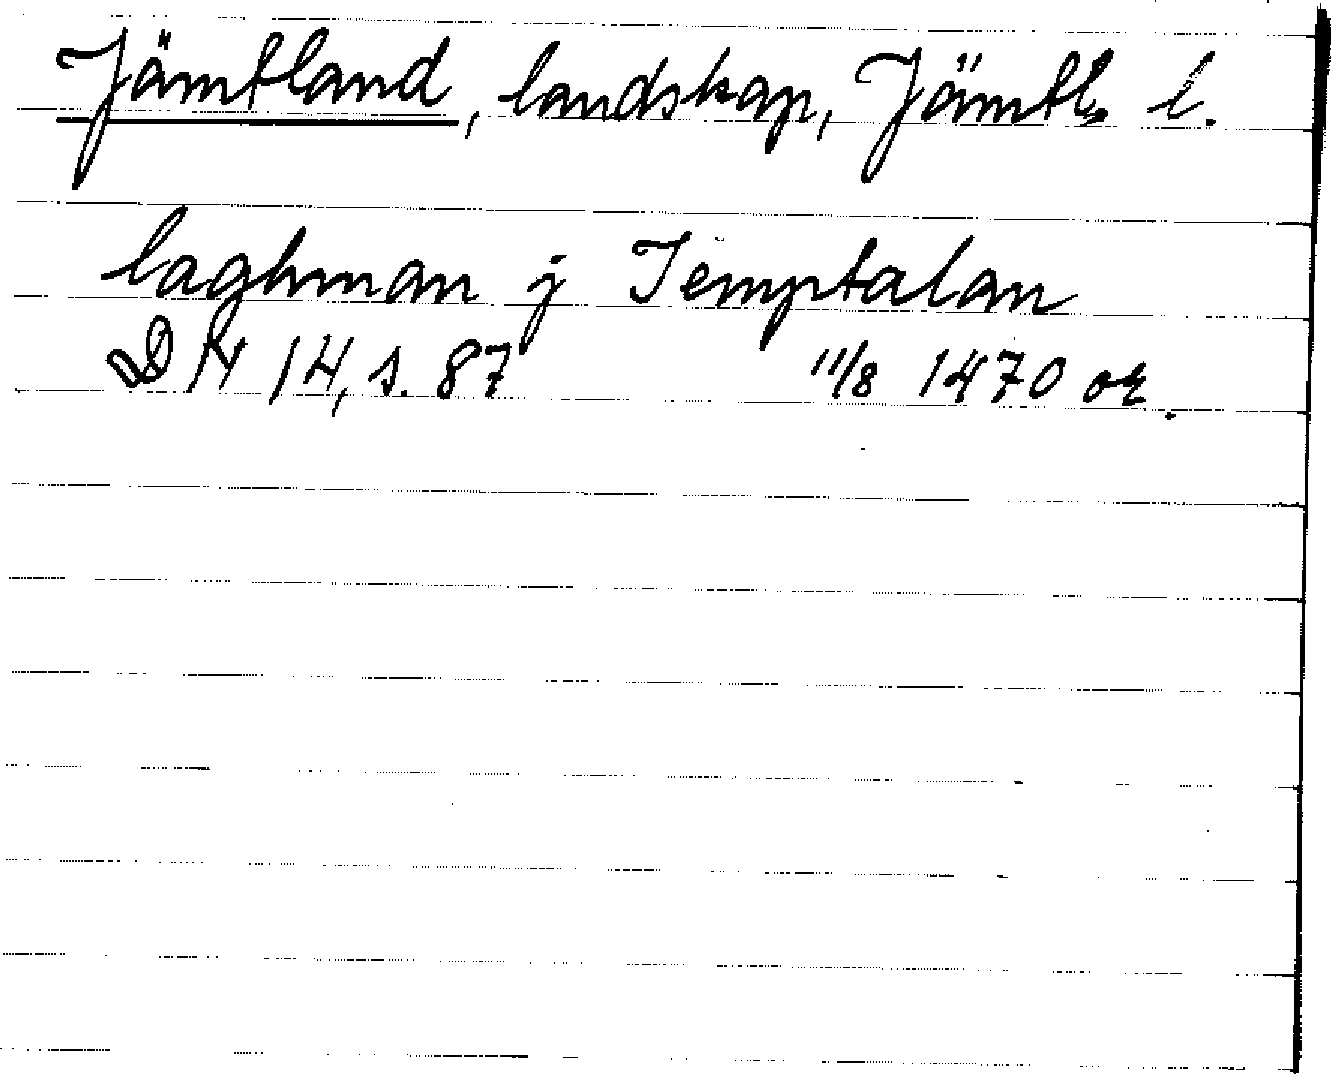 Jämtland, landskap, Jämtl:s l.
laghman j Jemptalan
DN 14, s. 87 11/8 1470 or.